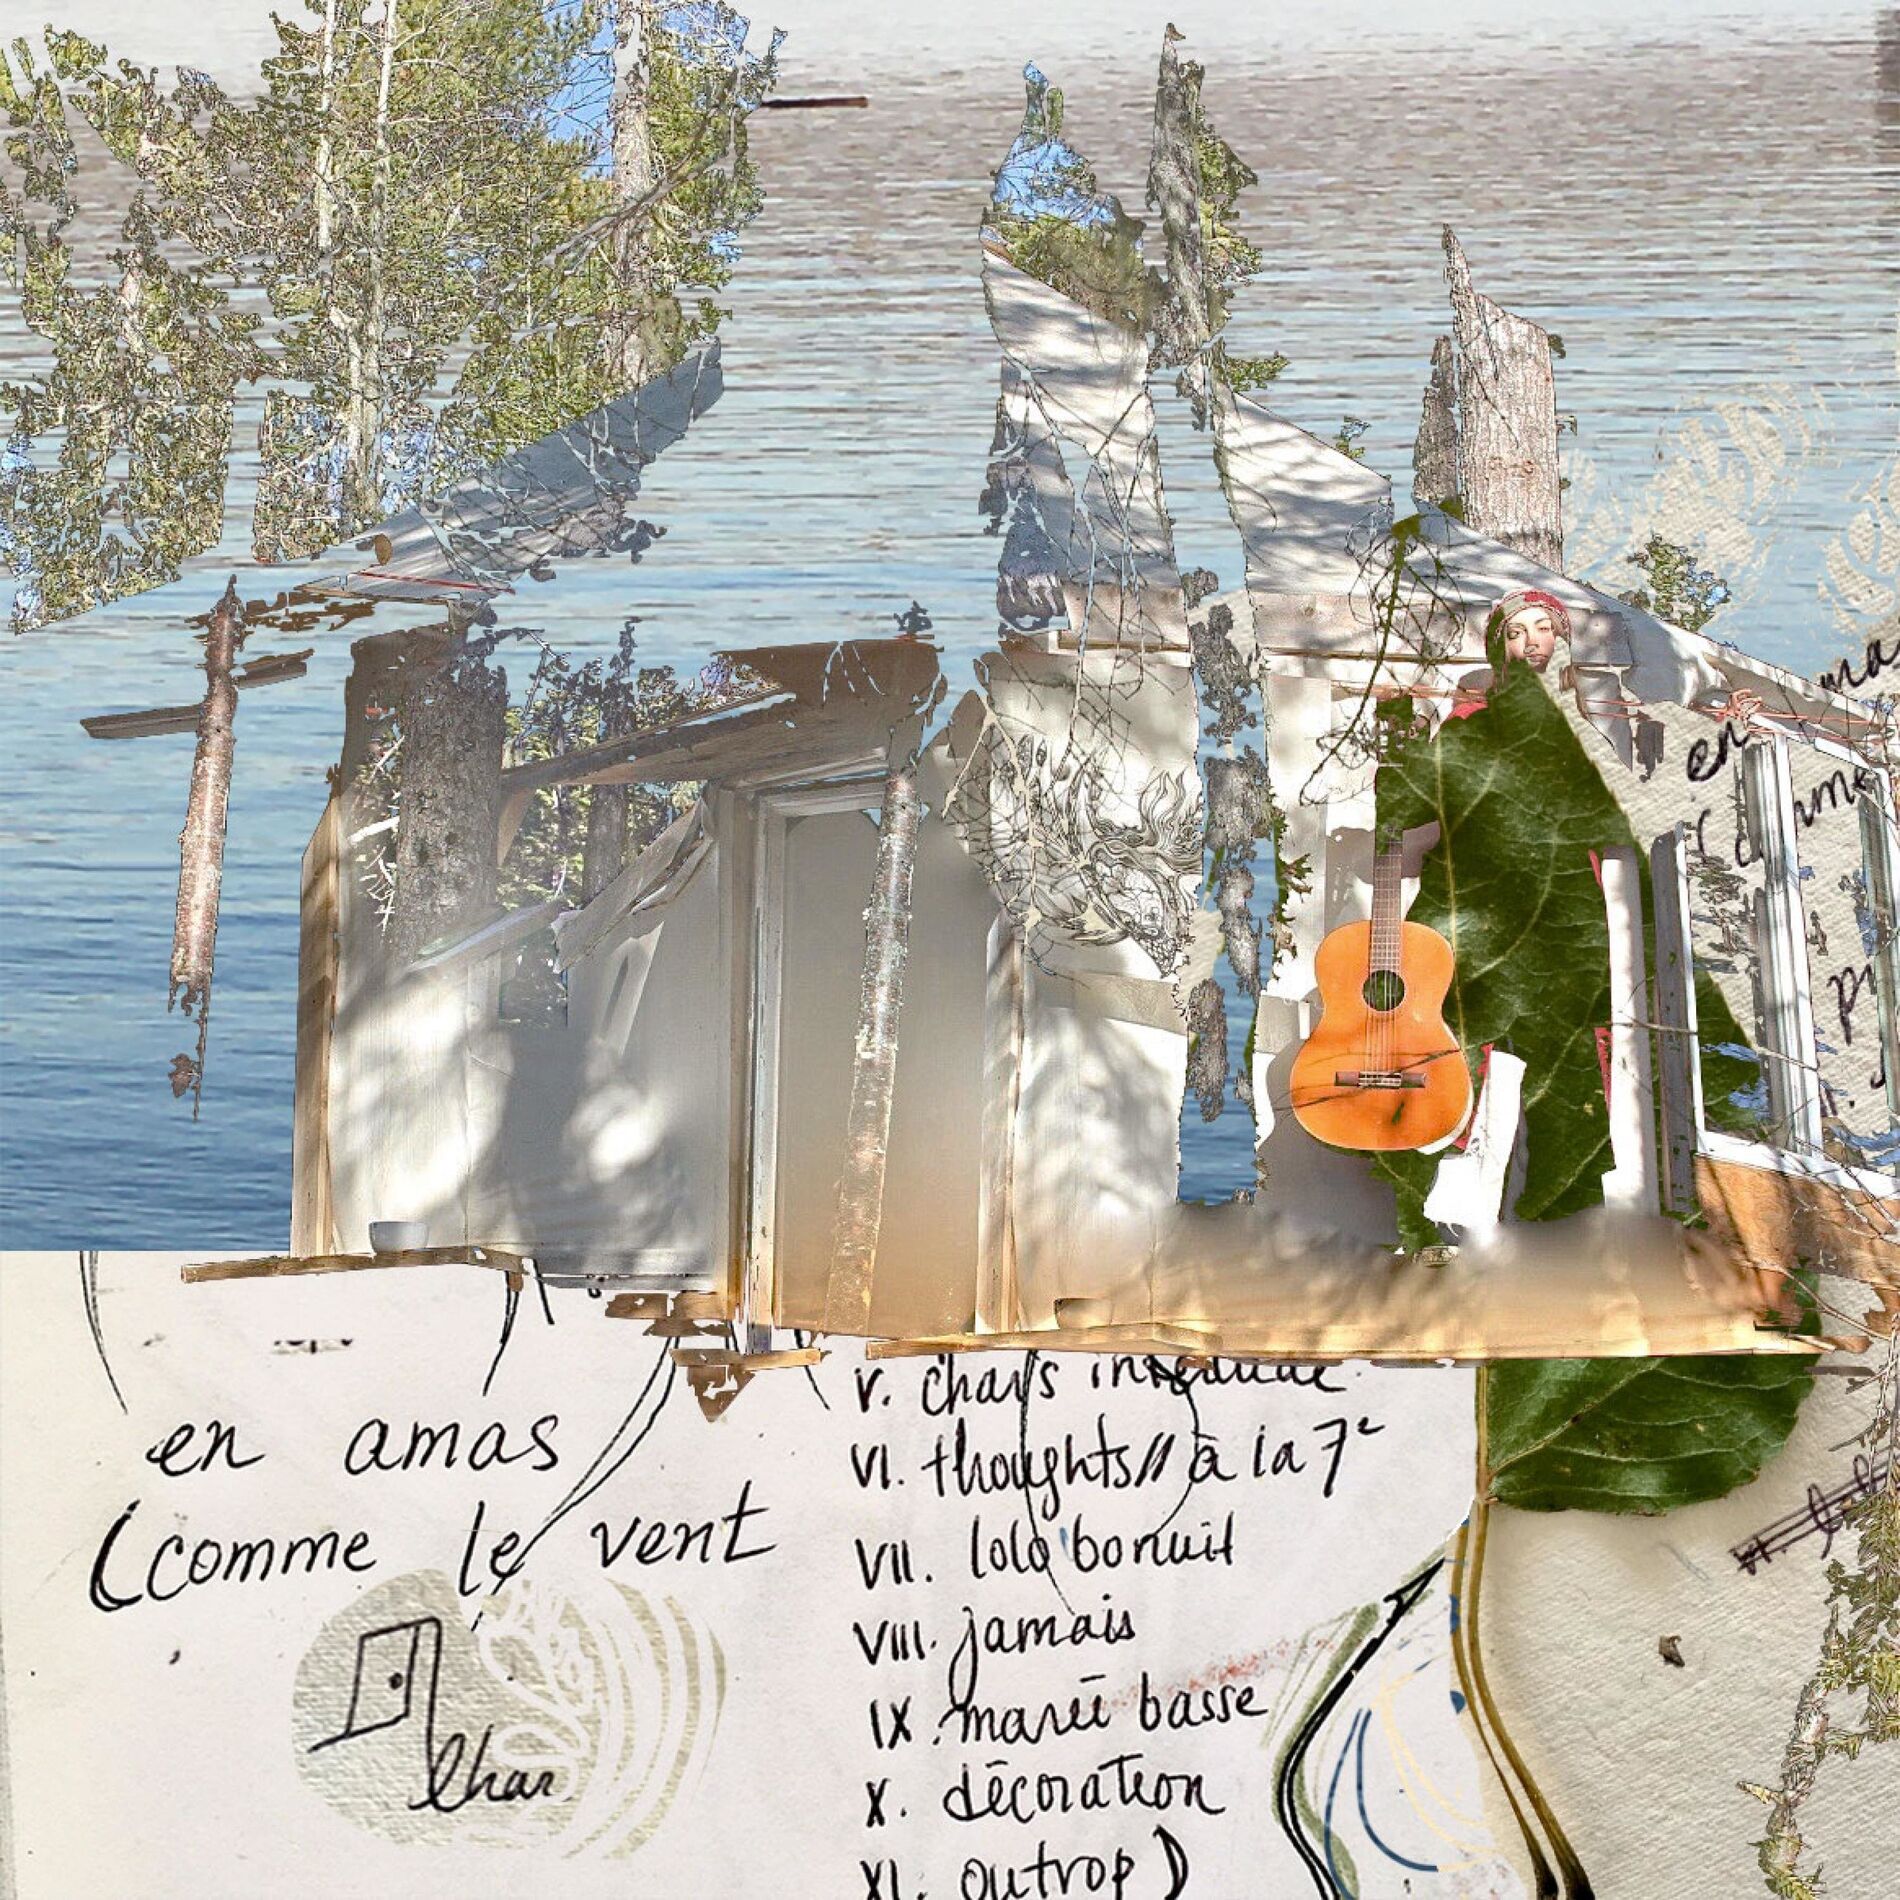 en amas
(comme le vent
lhar
V. chais
VI. thoughts// à la 7e
VII. lolo bonuit
VIII. jamais
IX. marée basse
X. décoration
XI. outrop)
ma
en